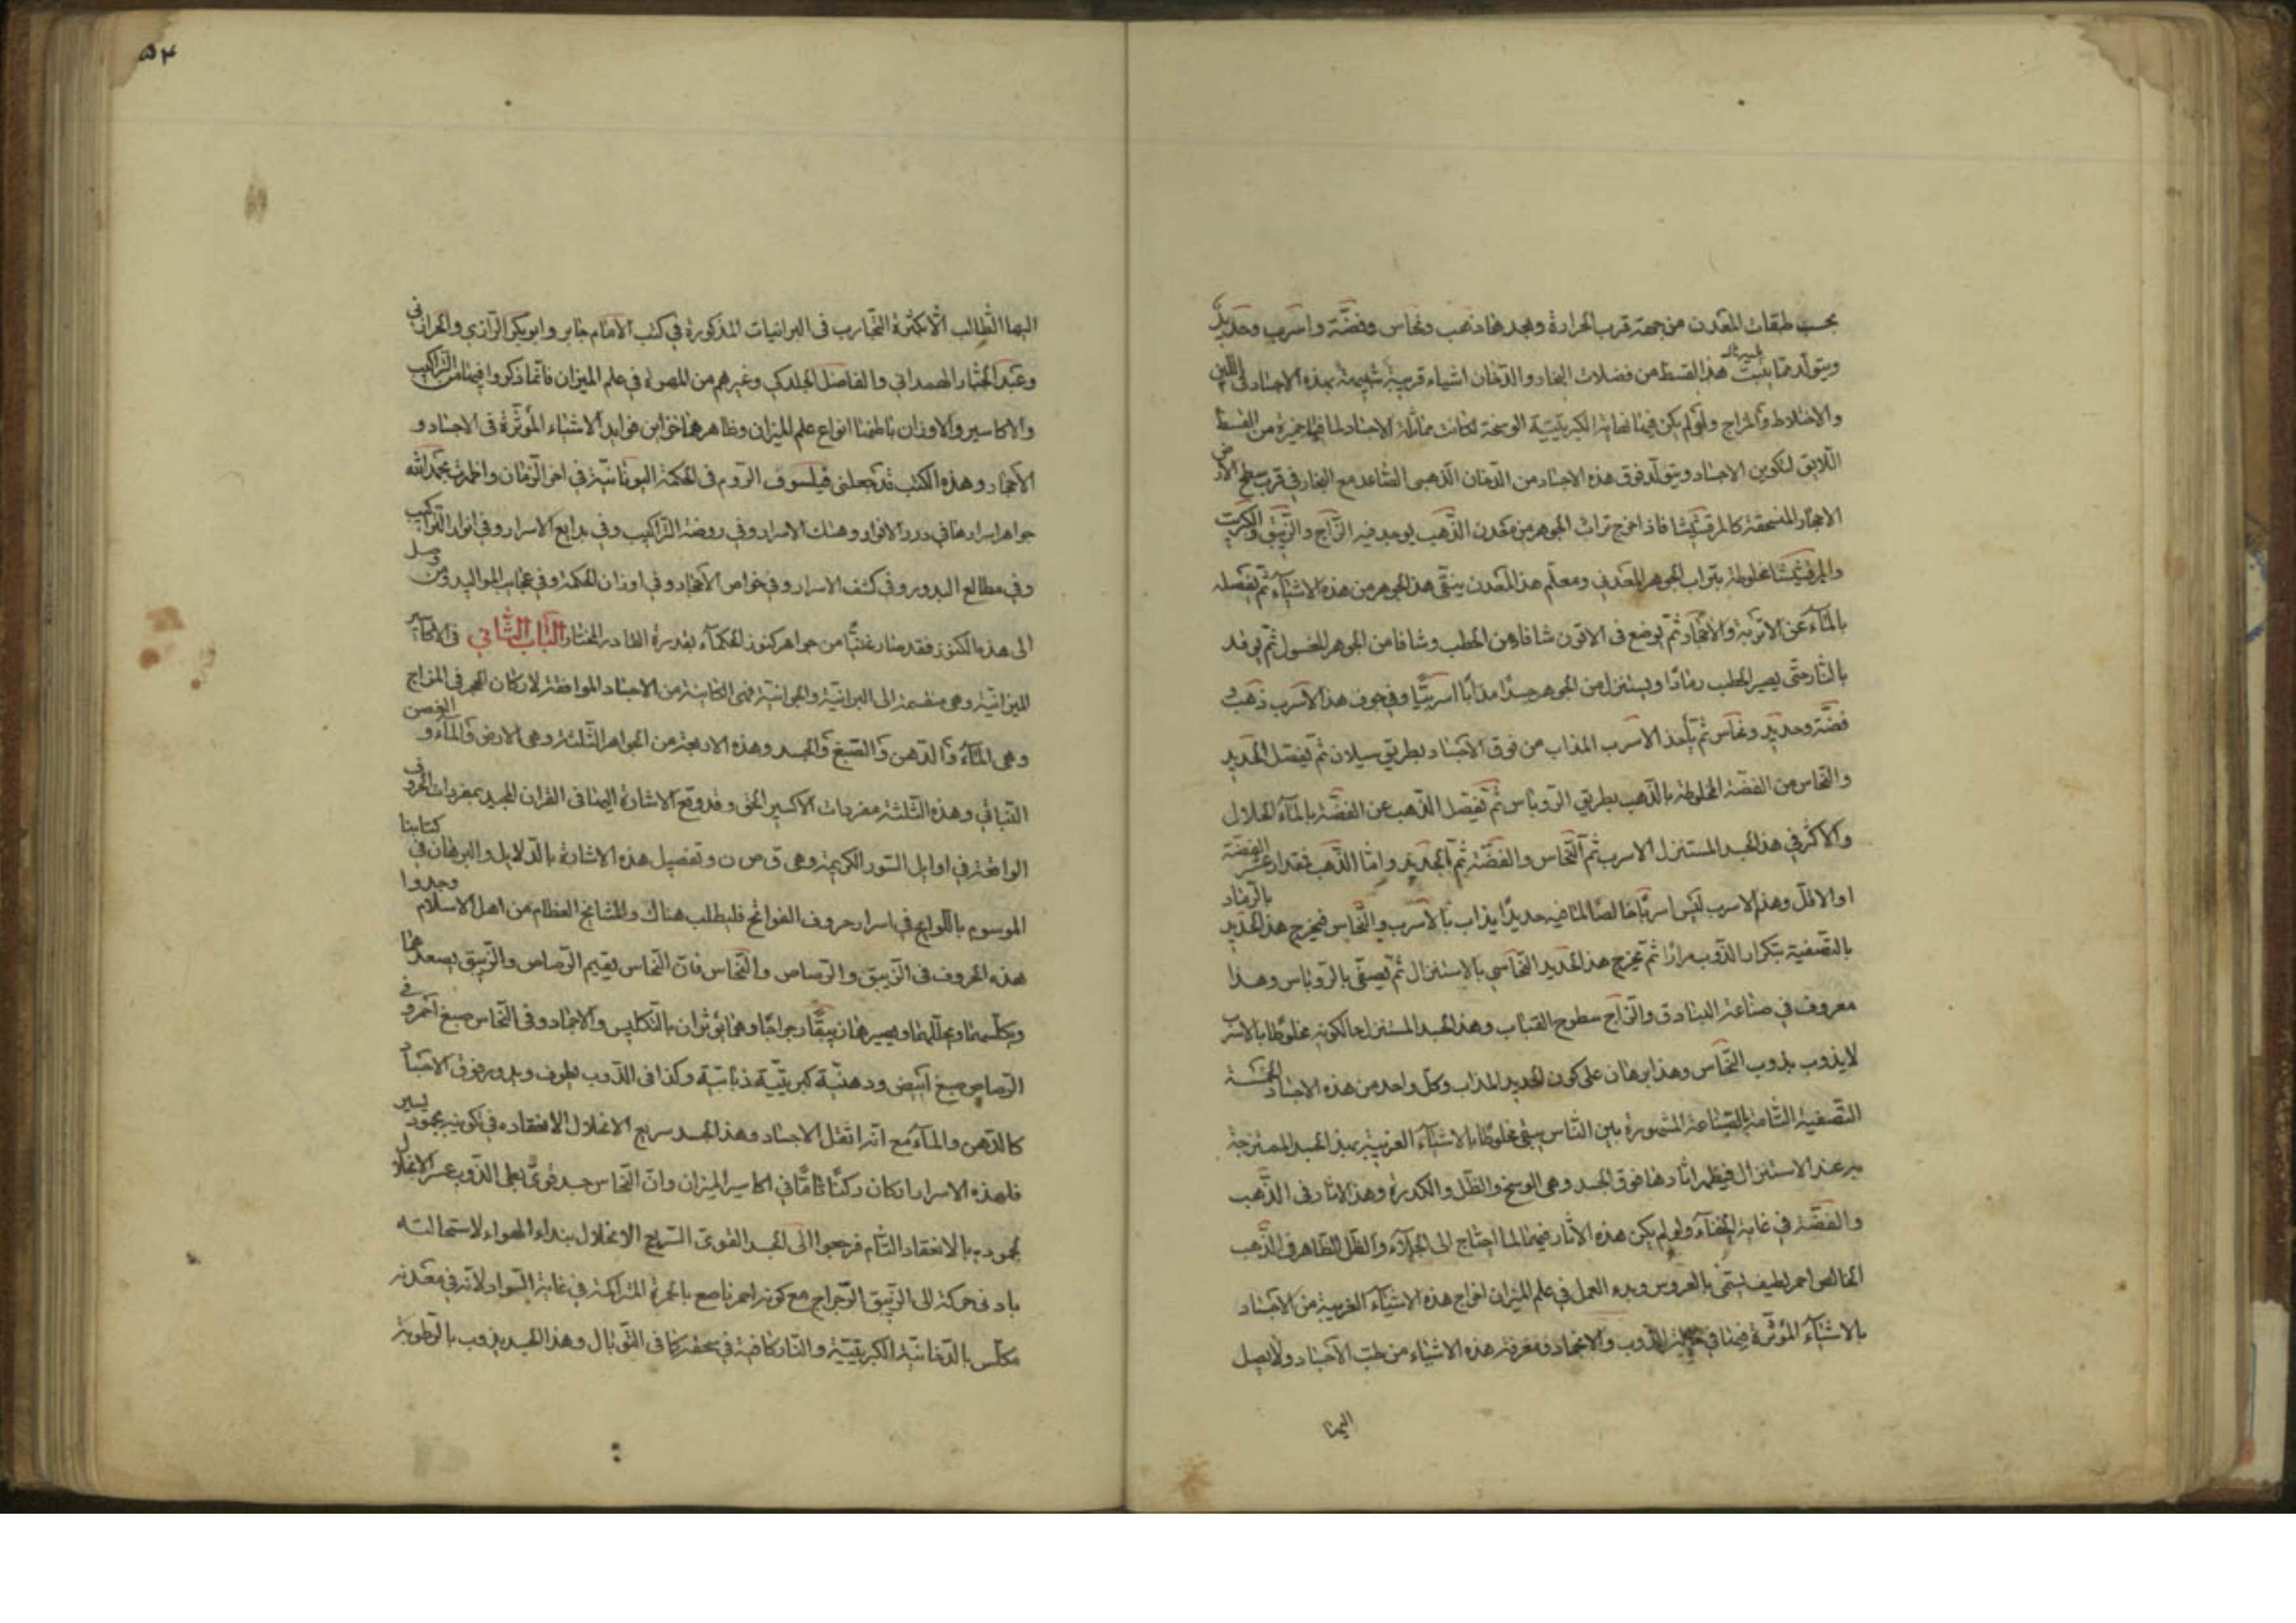 بحسب طبقات المعدن من جهة قرب الحرارة وبعدها ذهب ونحاس وفضّة واسرب وحديد
ويتولّد ممّا ينبت هذا القسط من فضلات البخار والدّخان اشياء قريبة شبيهة بهذه الاجساد فى اللين
والاختلاط والمزاج ولو لم يكن فيها نهاية الكبريتيّة الوسخة لكانت مماثلة الاجساد لما فيها خميرة من القسط
اللايق لتكوين الاجساد ويتولّد فوق هذه الاجساد من الدّخان الذّهبى الصّاعد مع البخار فى قرب سطح الارض
الاحجار المنسحقة كالمرقشيثا فاذا اخرج تراب الجوهر من معدن الذّهب يوجد فيه الزّاج والزّيبق والكبريت
والمرقشيثا مخلوطة بتراب الجوهر المعدنى ومعلّم هذا المعدن ينقّى هذا الجوهر من هذه الاشيآء ثمّ يغسله
بالمآء عن الاتربة والاحجار ثمّ يوضع فى الاتون شافا من الحطب وشافا من الجوهر المغسول ثمّ يوقد
بالنّار حتّى يصير الحطب رمادًا ويستنزل من الجوهر جسدًا مذابًا اسربيًّا وفى جوف هذا الاسرب ذهب و
فضّة وحديد ونحاس ثمّ يأخذ الاسرب المذاب من فوق الاجساد بطريق سيلان ثمّ يفصل الحديد
والنّحاس من الفضّة المخلوطة بالذّهب بطريق الرّوباس ثمّ يفصل الذّهب عن الفضّة بالمآء الحلّال
والاكثر فى هذا الجسد المستنزل الاسرب ثمّ النّحاس والفضّة ثمّ الحديد وامّا الذّهب فمقدار عشر الفضّة
او الاقلّ وهذا الاسرب ليس اسربًا خالصًا لما فيه حديدًا يذاب بالاسرب والنّحاس فيخرج هذا الحديد بالرّماد
بالتصفية بتكرار الذّوب مرارًا ثمّ يخرج هذا الحديد النّحاسى بالاستنزال ثمّ يصفّى بالرّوباس وهذا
معروف فى صناعة البنادق والزّاج سطوح القباب وهذا الجسد المستنزل حالكونه مخلوطا بالاسرب
لا يذوب بذوب النّحاس وهذا برهان على كون الحديد المذاب وكلّ واحد من هذه الاجساد الخمسة
التصفية التّامة بالصّناعة المشهورة بين النّاس يبقى مخلوطا بالاشيآء الغريبة بهذا الجسد الممتزجة
به عند الاستنزال فيظهر اثارها فوق الجسد وهى الوسخ والظّل والكدرة وهذا الاثار فى الذّهب
والفضّة فى غاية الخفآء ولو لم يكن هذه الاثار فيهما لما احتاج الى الجلاء والظّل الظاهر فى الذّهب
الخالص احمر لطيف يسمّى بالعروس وبدء العمل فى علم الميزان اخراج هذه الاشيآء الغريبة من الاجساد
بالاشيآء المؤثّرة فيها فى الذّوب والانجماد ومعرفة هذه الاشياء من طبّ الاجساد ولا يصل
اليها
٥٣
اليها الطّالب الّا بكثرة التّجارب فى البرانيات المذكورة فى كتب الامام جابر وابو بكر الرّازى والحرانى فى
وعبد الجبّار الهمدانى والفاضل الجلدكى وغيرهم من المهرة فى علم الميزان فانّما ذكروا فيها من التراكيب
والاكاسير والاوزان باطنها انواع علم الميزان وظاهرها خزاين فوايد الاشياء المؤثّرة فى الاجساد و
الاحجار وهذه الكتب قد جعلنى فيلسوف الرّوم فى الحكمة اليونانيّة فى اخر الزّمان واظهرت بحمد الله
جواهر اسرارها فى درر الانوار وهتك الاسرار وفى روضة التراكيب وفى بدايع الاسرار وفى انوار التراكيب
وفى مطالع البدور وفى كشف الاسرار وفى خواص الاحجار وفى اوزان الحكمة وفى عجايب المواليد ومن وصل
الى هذه الكنوز فقد صار غنيًّا من جواهر كنوز الحكمآء بقدرة القادر المختار الباب الثّانى فى الاكاسير
الميزانيّة وهى منقسمة الى البرانيّة والجوانيّة فهى الكاينة من الاجساد الموافقة لاركان الحجر فى المزاج
وهى المآء والدّهن والصّبغ والجسد وهذه الاربعة من الجواهر الثّلثة وهى الارض والمآء و الغصن
النّباتى وهذه الثّلثة مفردات الاكسير الحق وقد وقع الاشارة اليها فى القران المجيد بمفردات الحروف
الواقعة فى اوايل السّور الكريمة وهى ق ص ن وتفصيل هذه الاشارة بالدّلايل والبرهان فى كتابنا
الموسوم باللّوامع فى اسرار حروف الفواتح فليطلب هناك والمشايخ العظام من اهل الاسلام وجدوا
هذه الحروف فى الزّيبق والرّصاص والنّحاس فانّ النّحاس يقيم الرّصاص والزّيبق يصعدهما
ويكلّسهما ويحلّلهما ويصيرهما زيبقًا رجراجًا وهما يؤثّران بالتكليس والانجماد وفى النّحاس صبغ احمر وفى
الرّصاص صبغ ابيض ودهنيّة كبريتيّة ذبابيّة وكذا فى الذّوب يطوف ويدور فوق الاجساد
كالدّهن والمآء مع انّه اثقل الاجساد وهذا الجسد سريع الانحلال لانعقاده فى تكوينه بجمود يسير
فلهذه الاسرار كان ركنًا تامًّا فى اكاسير الميزان وانّ النّحاس جسد قوىّ بطى الذّوب عسر الانحلال
بجموده بالانعقاد التّام فرجعوا الى الجسد القوىّ السّريع الانحلال بنداء الهواء لاستحالته
بادنى حركة الى الزّيبق الرّجراج مع كونه احمر ناصع بالحمرة المتراكمة فى غاية السّواد لانّه فى معدنه
مكلّس بالدّخانيّة الكبريتيّة والنّار كافية فى سحقه كما فى التّوبال وهذا الجسد يذوب بالرّطوبة